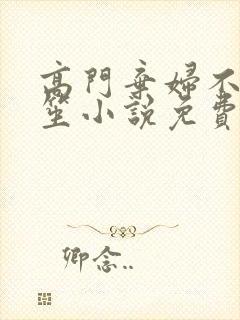 高門棄婦不
笙小說免費
卿念..